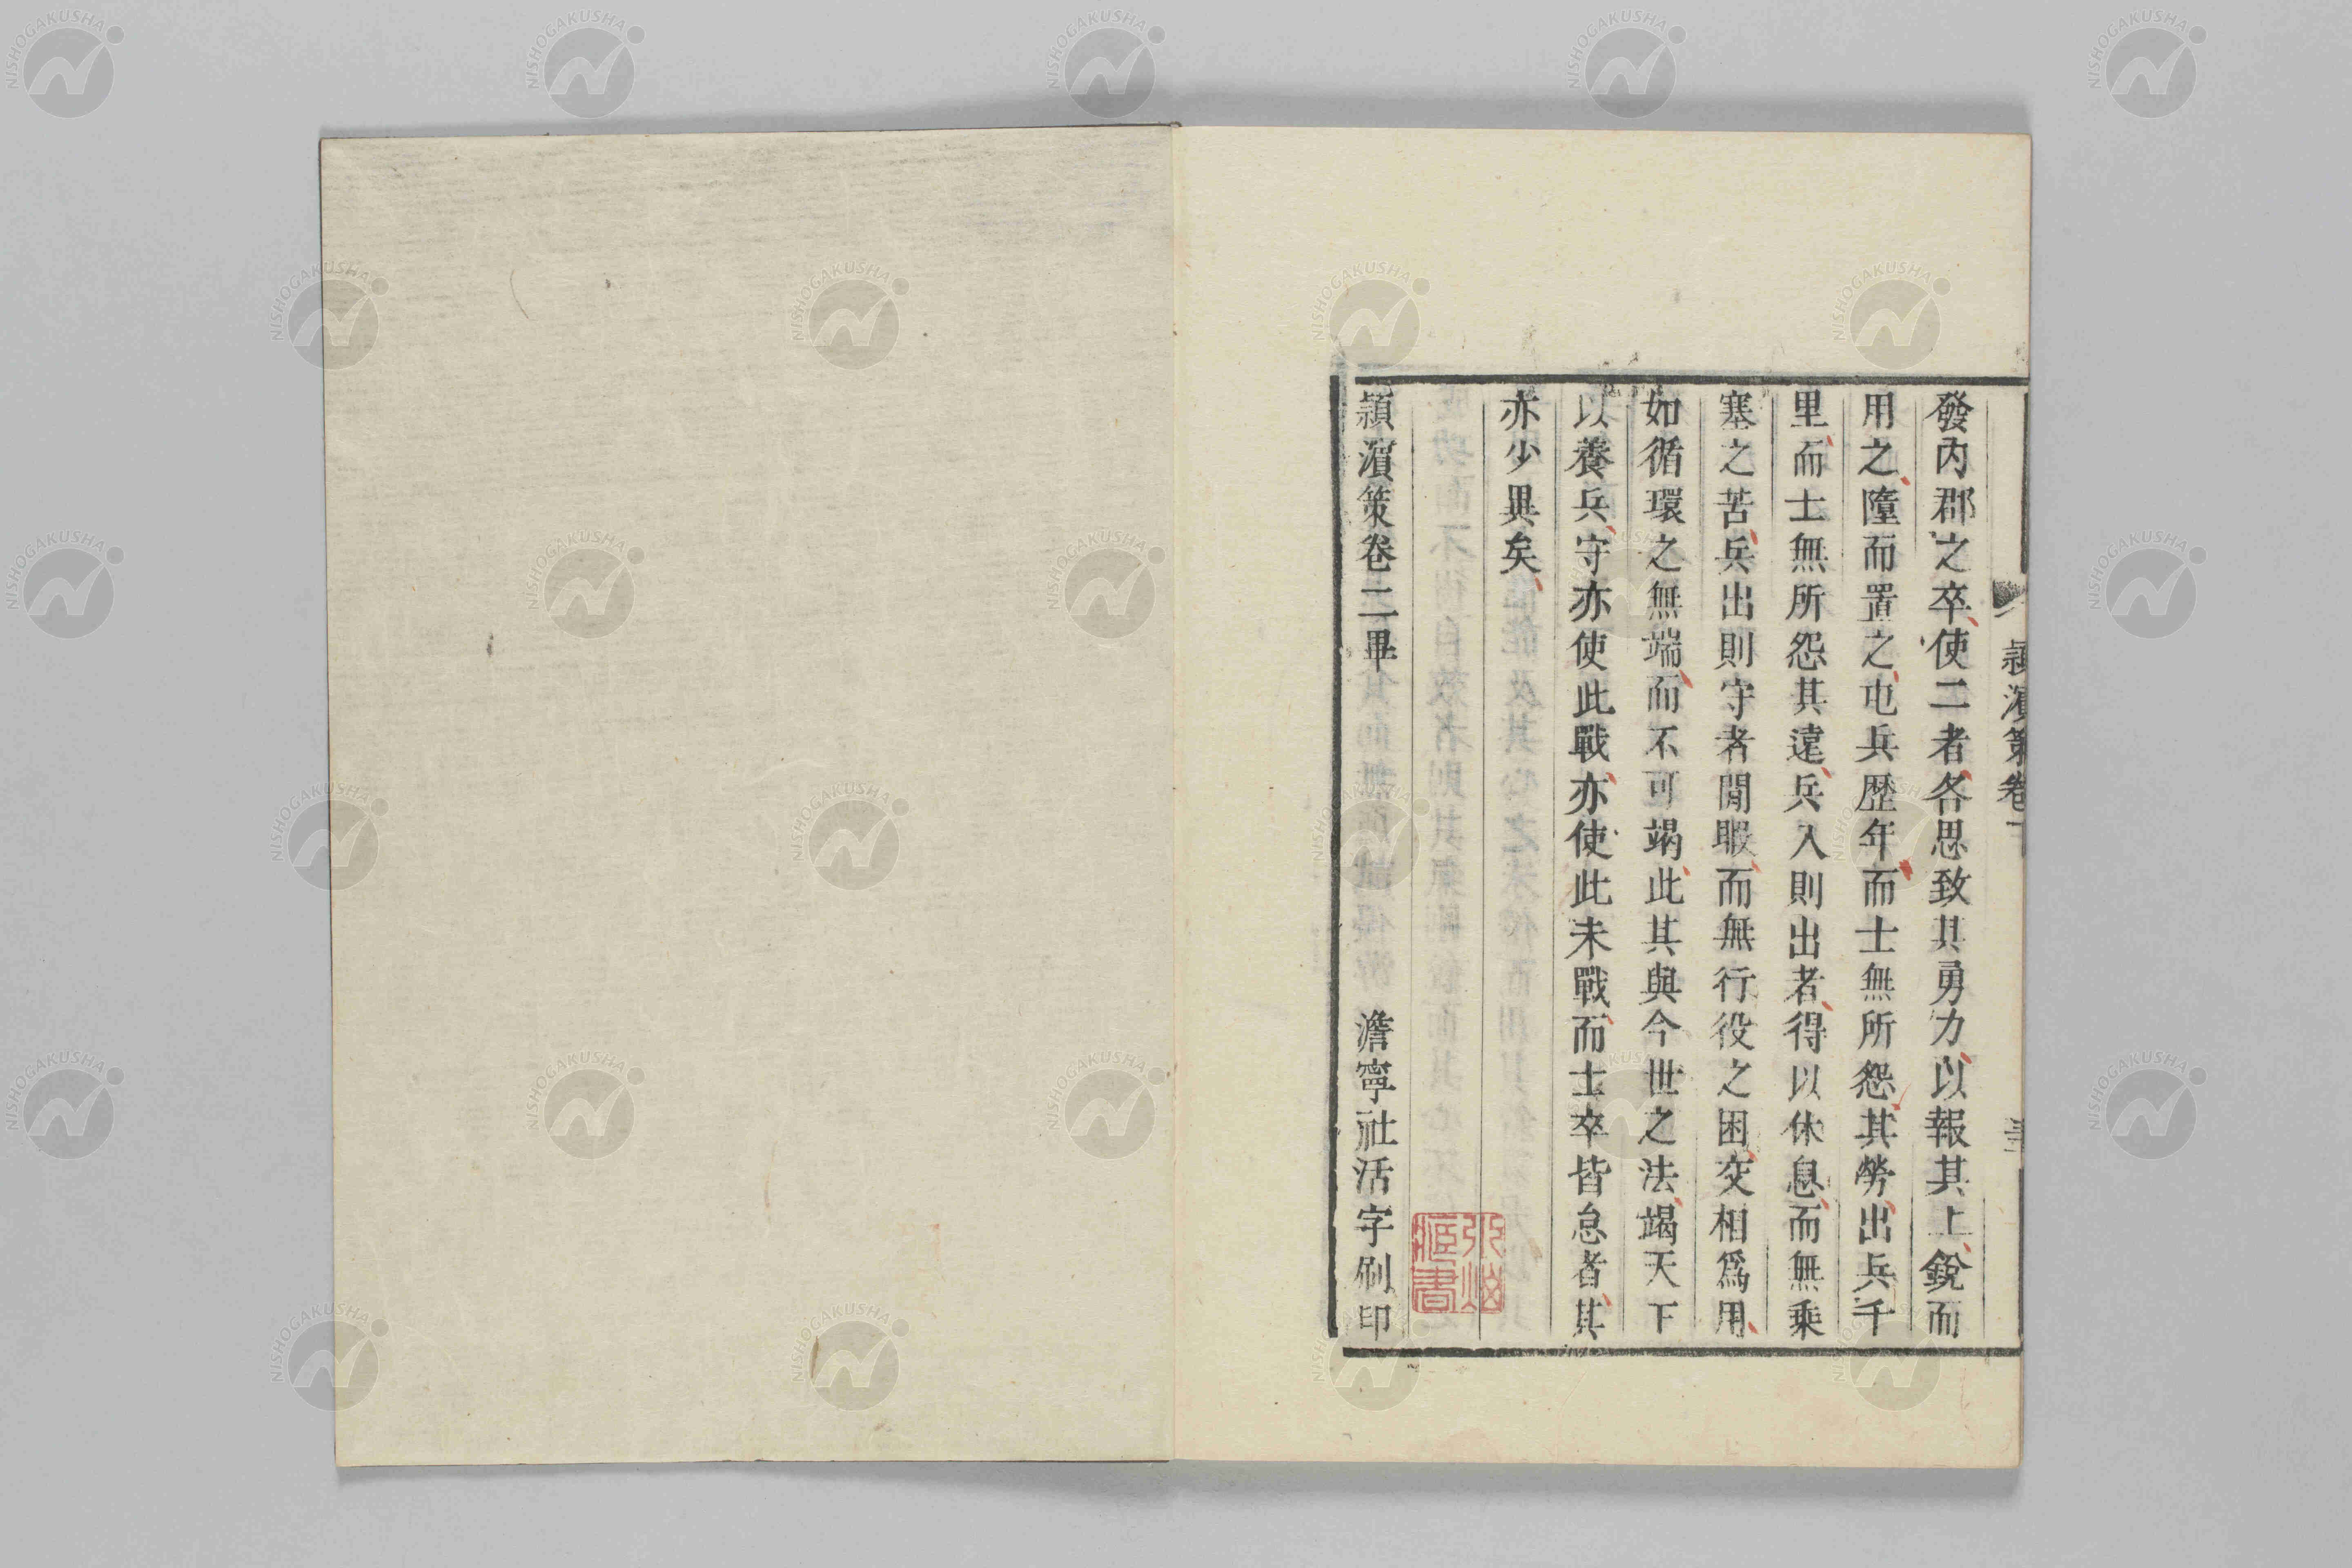 發內郡之卒使二者各思致其勇力以報其上銳而
用之墮而置之屯兵歷年而士無所怨其勞出兵千
里而士無所怨其遠兵入則出者得以休息而無乘
塞之苦兵出則守者閒暇而無行役之困交相爲用
如循環之無端而不可竭此其與今世之法竭天下
以養兵守亦使此戰亦使此未戰而士卒皆怠者其
亦少異矣
潁濵策卷二畢 澹寧社活字刷印
NISHOGAKUSHA